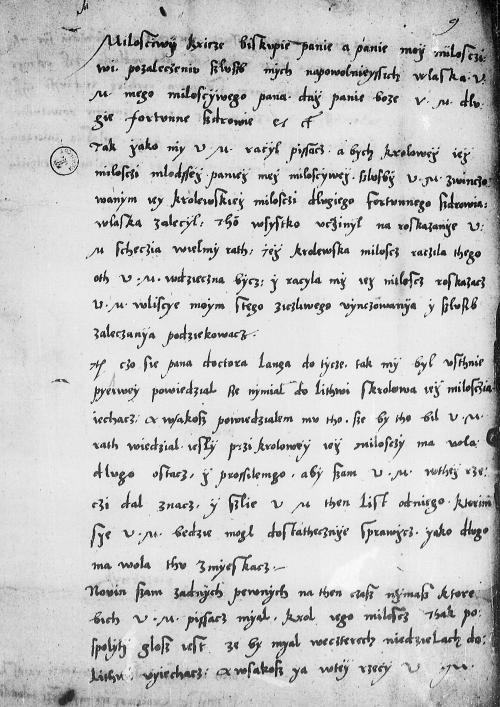 Miloscziwÿ kxieze biskupie panie a panie moÿ miloscżi
wi. pozaleczeniu szluszb mÿch napowolnieyssich w laska. v.
m. mego milosczÿwego pana. daÿ panie boze v. m. dlu
gie fortunne sdrowie etc
Tak yako mÿ v m. racżyl pissacz. abych krolowey ieÿ
milosczi mlodsseÿ paniey meÿ milosczÿweÿ. szluszbÿ v. m. zwinczo
wanym ieÿ krolewskieÿ milosczi dlugiego fortunnego sżdrowia:
w laska zalecżyl: Tho wsystko vcżinyl na roskazanye v:
m scheczia wielmÿ rath: Jeÿ krolewska miloscz raczila thego
oth v. m. wdzieczna bÿcz: ÿ racyla mÿ ieÿ miloscz roskazacz
v. m. w liscye moym stego zicżliwego vÿnczowanÿa ÿ szluszb
zaleczanÿa podziekowacz.
czo sie pana doctora Langa do tÿcze. tak mÿ bÿl vsthnie
pyerweÿ powiedzial ße nÿmial do Lithwi skrolowa ieÿ milosczia
iechacz: a wsakosz powiedzialem mu tho. sze bÿ tho bil v. m.
rath wiedzial. iesly przi kroloweÿ ieÿ milosczÿ ma vola
dlugo ostacz. ÿ prossilemgo. abÿ szam v. m. w theÿ rze
czi dal znacz. ÿ szlie v m then list od niego. kterim
sÿe v. m. bedzie mogl dostathecznÿe sprawÿcz. yako dlugo
ma wola thu zmyeskacz.
Nowin szam zadnÿch pewnÿch na then czasz nÿmasz ktore
bich v. m. pissacz myal. krol iego miloscz Thak po:
spolitÿ glosz iest ze by myal weczterech niedzielach do:
Lithwi vÿiechacz: a wsakosz ya w teÿ rzecÿ v m.